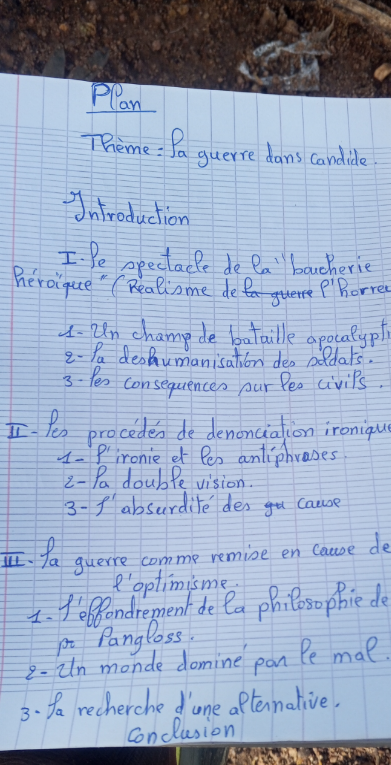 Plan
Thème = La guerre dans candide.
Introduction
I- Le spectacle de la "boucherie
héroïque" (Réalisme de la guerre l'horreu
1- Un champ de bataille apocalypti
2- La deshumanisation des soldats.
3- Les consequences sur les civils.
II- Les procédés de denonciation ironique
1- l'ironie et les antiphrases.
2- La double vision.
3- l'absurdité des cause
III- La guerre comme remise en cause de
l'optimisme.
1- l'effondrement de la philosophie de
Pangloss.
2- Un monde dominé par le mal.
3- La recherche d'une alternative.
Conclusion